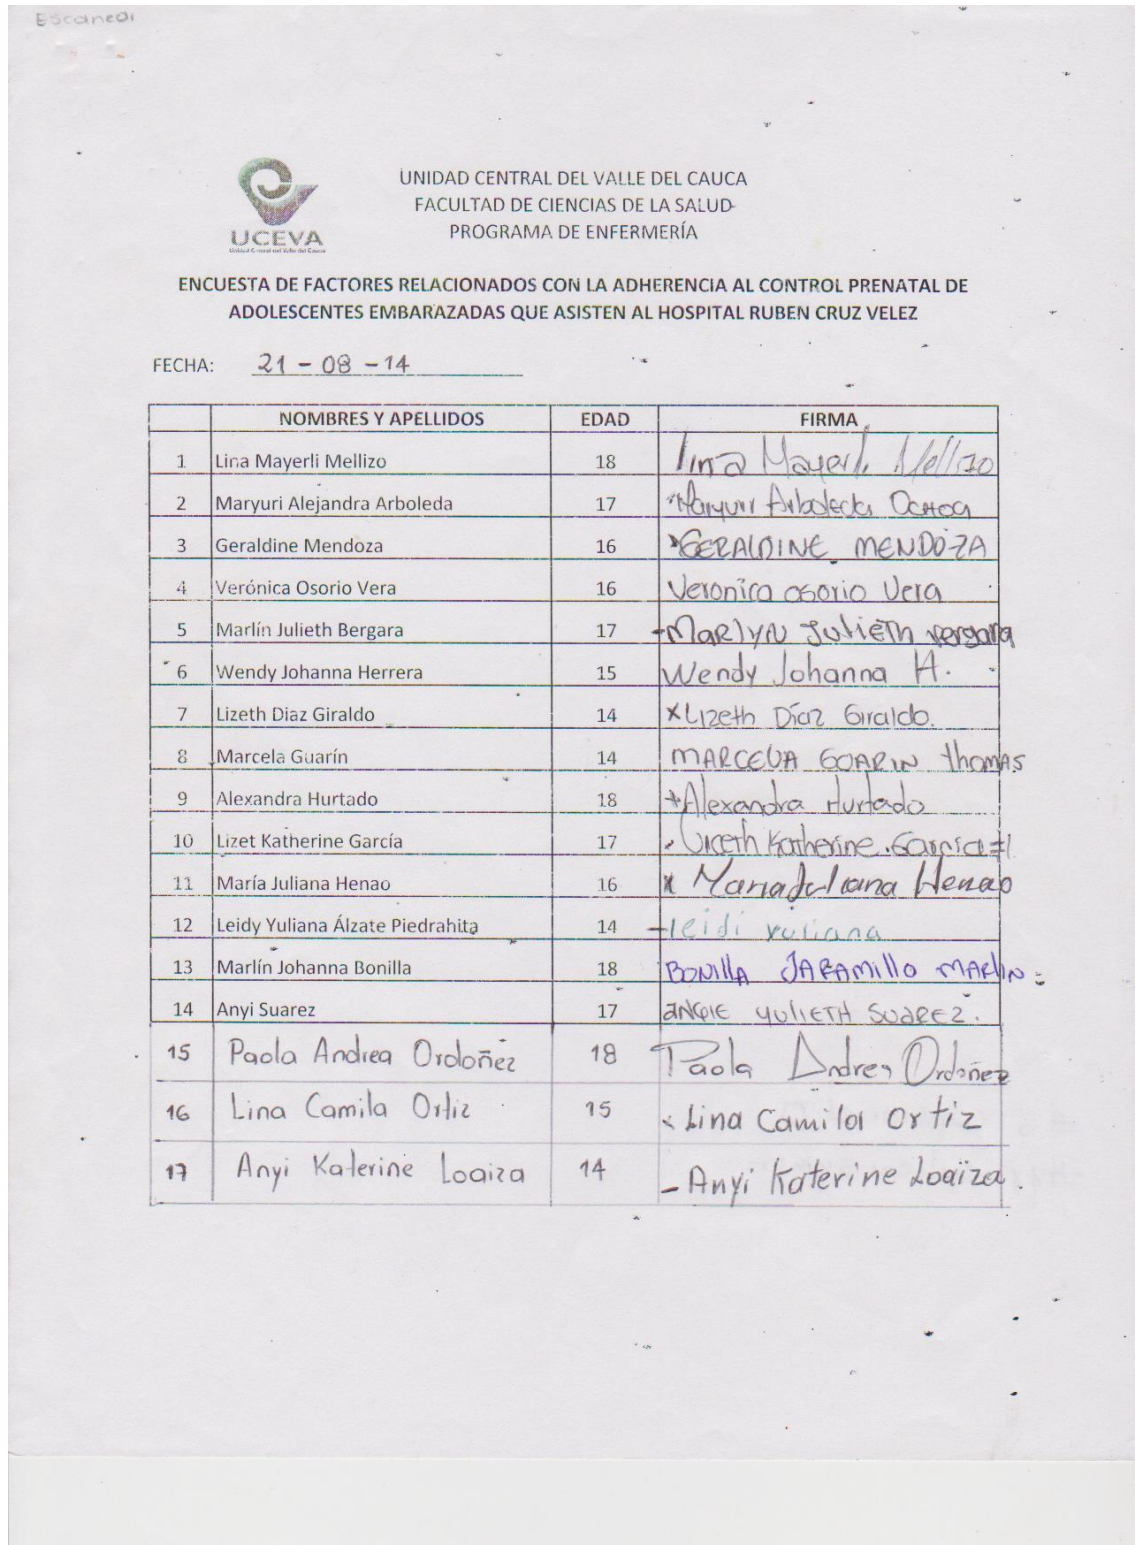 Escaneoi
UNIDAD CENTRAL DEL VALLE DEL CAUCA
FACULTAD DE CIENCIAS DE LA SALUD
PROGRAMA DE ENFERMERÍA
UCEVA
Unidad Central del Valle del Cauca
ENCUESTA DE FACTORES RELACIONADOS CON LA ADHERENCIA AL CONTROL PRENATAL DE
ADOLESCENTES EMBARAZADAS QUE ASISTEN AL HOSPITAL RUBEN CRUZ VELEZ
FECHA: 21 - 08 - 14
NOMBRES Y APELLIDOS EDAD FIRMA
1 Lina Mayerli Mellizo 18 Lina Mayerli Mellizo
2 Maryuri Alejandra Arboleda 17 Maryuri Arboleda Ochoa
3 Geraldine Mendoza 16 GERALDINE MENDOZA
4 Verónica Osorio Vera 16 Veronica osorio Vera
5 Marlín Julieth Bergara 17 - Marlyn Julieth vergara
6 Wendy Johanna Herrera 15 Wendy Johanna H.
7 Lizeth Diaz Giraldo 14 x Lizeth Díaz Giraldo.
8 Marcela Guarín 14 MARCELA GUARIN thomas
9 Alexandra Hurtado 18 + Alexandra Hurtado
10 Lizet Katherine García 17 Katherine Garcia
11 María Juliana Henao 16 x Maria Juliana Henao
12 Leidy Yuliana Álzate Piedrahita 14 - leidi yuliana
13 Marlín Johanna Bonilla 18 BONILLA JARAMILLO MARLIN
14 Anyi Suarez 17 ANGIE YULIETH SUAREZ.
15 Paola Andrea Ordoñez 18 Paola Andrea Ordoñez
16 Lina Camila Ortiz 15 x Lina Camila Ortiz
17 Anyi Katerine Loaiza 14 - Anyi Katerine Loaiza.